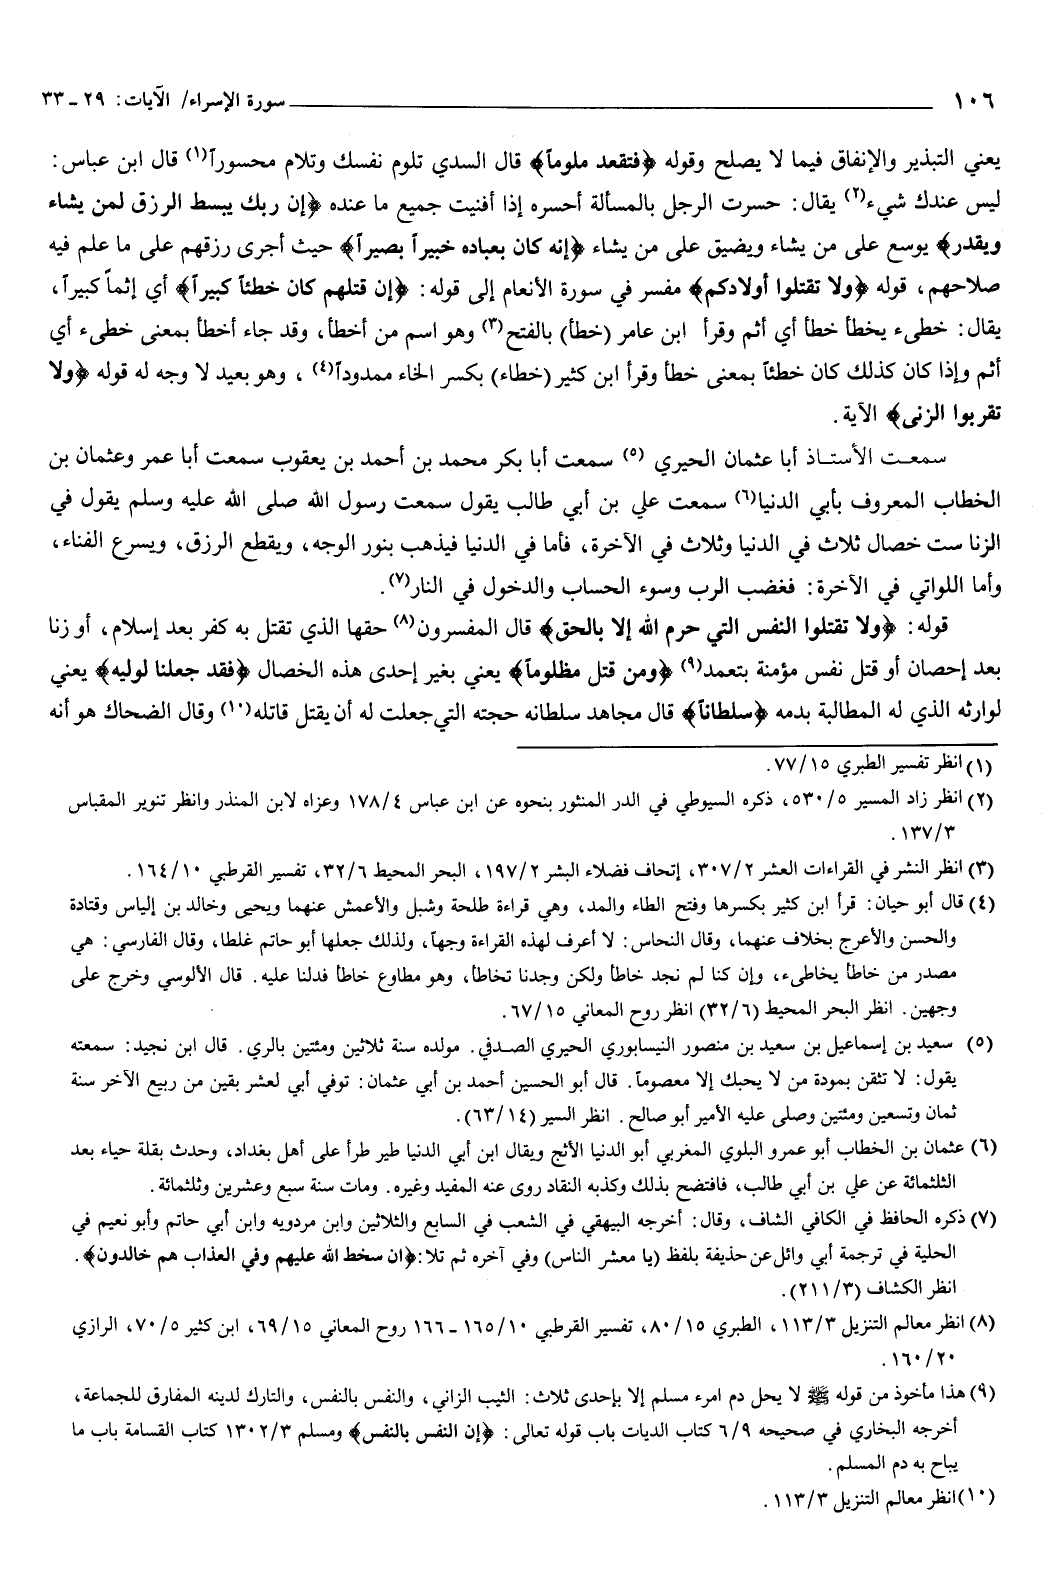 ١٠٦ سورة الإسراء/ الآيات: ٢٩ ـ ٣٣
يعني التبذير والإنفاق فيما لا يصلح وقوله ﴿فتقعد ملوماً﴾ قال السدي تلوم نفسك وتلام محسوراً(١) قال ابن عباس:
ليس عندك شيء(٢) يقال: حسرت الرجل بالمسألة أحسره إذا أفنيت جميع ما عنده ﴿إن ربك يبسط الرزق لمن يشاء
ويقدر﴾ يوسع على من يشاء ويضيق على من يشاء ﴿إنه كان بعباده خبيراً بصيراً﴾ حيث أجرى رزقهم على ما علم فيه
صلاحهم، قوله ﴿ولا تقتلوا أولادكم﴾ مفسر في سورة الأنعام إلى قوله: ﴿إن قتلهم كان خطئاً كبيراً﴾ أي إثماً كبيراً،
يقال: خطىء يخطأ خطأ أي أثم وقرأ ابن عامر (خطأ) بالفتح(٣) وهو اسم من أخطأ، وقد جاء أخطأ بمعنى خطىء أي
أثم وإذا كان كذلك كان خطئاً بمعنى خطأ وقرأ ابن كثير (خطاء) بكسر الخاء ممدوداً(٤) ، وهو بعيد لا وجه له قوله ﴿ولا
تقربوا الزنى﴾ الآية.
سمعت الأستاذ أبا عثمان الحيري (٥) سمعت أبا بكر محمد بن أحمد بن يعقوب سمعت أبا عمر وعثمان بن
الخطاب المعروف بأبي الدنيا(٦) سمعت علي بن أبي طالب يقول سمعت رسول الله صلى الله عليه وسلم يقول في
الزنا ست خصال ثلاث في الدنيا وثلاث في الآخرة، فأما في الدنيا فيذهب بنور الوجه، ويقطع الرزق، ويسرع الفناء،
وأما اللواتي في الآخرة: فغضب الرب وسوء الحساب والدخول في النار(٧).
قوله: ﴿ولا تقتلوا النفس التي حرم الله إلا بالحق﴾ قال المفسرون(٨) حقها الذي تقتل به كفر بعد إسلام، أو زنا
بعد إحصان أو قتل نفس مؤمنة بتعمد(٩) ﴿ومن قتل مظلوماً﴾ يعني بغير إحدى هذه الخصال ﴿فقد جعلنا لوليه﴾ يعني
لوارثه الذي له المطالبة بدمه ﴿سلطاناً﴾ قال مجاهد سلطانه حجته التي جعلت له أن يقتل قاتله(١٠) وقال الضحاك هو أنه
(١) انظر تفسير الطبري ٧٧/١٥.
(٢) انظر زاد المسير ٥٣٠/٥، ذكره السيوطي في الدر المنثور بنحوه عن ابن عباس ١٧٨/٤ وعزاه لابن المنذر وانظر تنوير المقباس
١٣٧/٣.
(٣) انظر النشر في القراءات العشر ٣٠٧/٢، إتحاف فضلاء البشر ١٩٧/٢، البحر المحيط ٣٢/٦، تفسير القرطبي ١٦٤/١٠.
(٤) قال أبو حيان: قرأ ابن كثير بكسرها وفتح الطاء والمد، وهي قراءة طلحة وشبل والأعمش عنهما ويحيى وخالد بن إلياس وقتادة
والحسن والأعرج بخلاف عنهما، وقال النحاس: لا أعرف لهذه القراءة وجهاً، ولذلك جعلها أبو حاتم غلطا، وقال الفارسي: هي
مصدر من خاطأ يخاطىء، وإن كنا لم نجد خاطأ ولكن وجدنا تخاطأ، وهو مطاوع خاطأ فدلنا عليه. قال الألوسي وخرج على
وجهين. انظر البحر المحيط (٣٢/٦) انظر روح المعاني ٦٧/١٥.
(٥) سعيد بن إسماعيل بن سعيد بن منصور النيسابوري الحيري الصدفي. مولده سنة ثلاثين ومئتين بالري. قال ابن نجيد: سمعته
يقول: لا تثقن بمودة من لا يحبك إلا معصوماً. قال أبو الحسين أحمد بن أبي عثمان: توفي أبي لعشر بقين من ربيع الآخر سنة
ثمان وتسعين ومئتين وصلى عليه الأمير أبو صالح. انظر السير (٦٣/١٤).
(٦) عثمان بن الخطاب أبو عمرو البلوي المغربي أبو الدنيا الأثج ويقال ابن أبي الدنيا طير طرأ على أهل بغداد، وحدث بقلة حياء بعد
الثلثمائة عن علي بن أبي طالب، فافتضح بذلك وكذبه النقاد روى عنه المفيد وغيره. ومات سنة سبع وعشرين وثلثمائة.
(٧) ذكره الحافظ في الكافي الشاف، وقال: أخرجه البيهقي في الشعب في السابع والثلاثين وابن مردويه وابن أبي حاتم وأبو نعيم في
الحلية في ترجمة أبي وائل عن حذيفة بلفظ (يا معشر الناس) وفي آخره ثم تلا: ﴿ان سخط الله عليهم وفي العذاب هم خالدون﴾.
انظر الكشاف (٢١١/٣).
(٨) انظر معالم التنزيل ١١٣/٣، الطبري ٨٠/١٥، تفسير القرطبي ١٦٥/١٠ ـ ١٦٦ روح المعاني ٦٩/١٥، ابن كثير ٧٠/٥، الرازي
١٦٠/٢٠.
(٩) هذا مأخوذ من قوله ﷺ لا يحل دم امرء مسلم إلا بإحدى ثلاث: الثيب الزاني، والنفس بالنفس، والتارك لدينه المفارق للجماعة،
أخرجه البخاري في صحيحه ٦/٩ كتاب الديات باب قوله تعالى: ﴿إن النفس بالنفس﴾ ومسلم ١٣٠٢/٣ كتاب القسامة باب ما
يباح به دم المسلم.
(١٠) انظر معالم التنزيل ١١٣/٣.